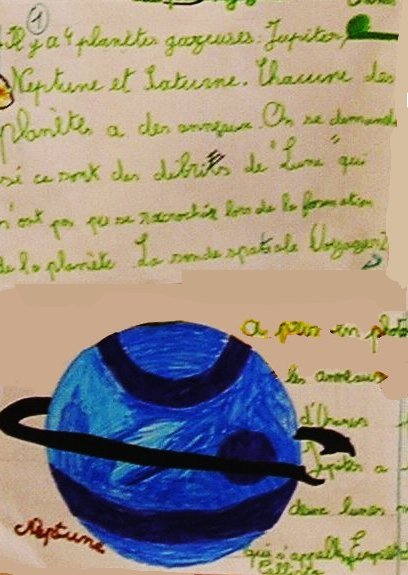 1
il y a 4 planètes gazeuses : Jupiter,
Neptune et Saturne. Chacune des
planètes a des anneaux. On se demande
si ce sont des débris de "Lune" qui
n'ont pas pu se raccrocher lors de la formation
de la planète. La sonde spatiale Voyager 2
a pris en photo
les anneaux
d'Uranus
Jupiter a
deux lunes
qui s'appelle
Callisto
Neptune